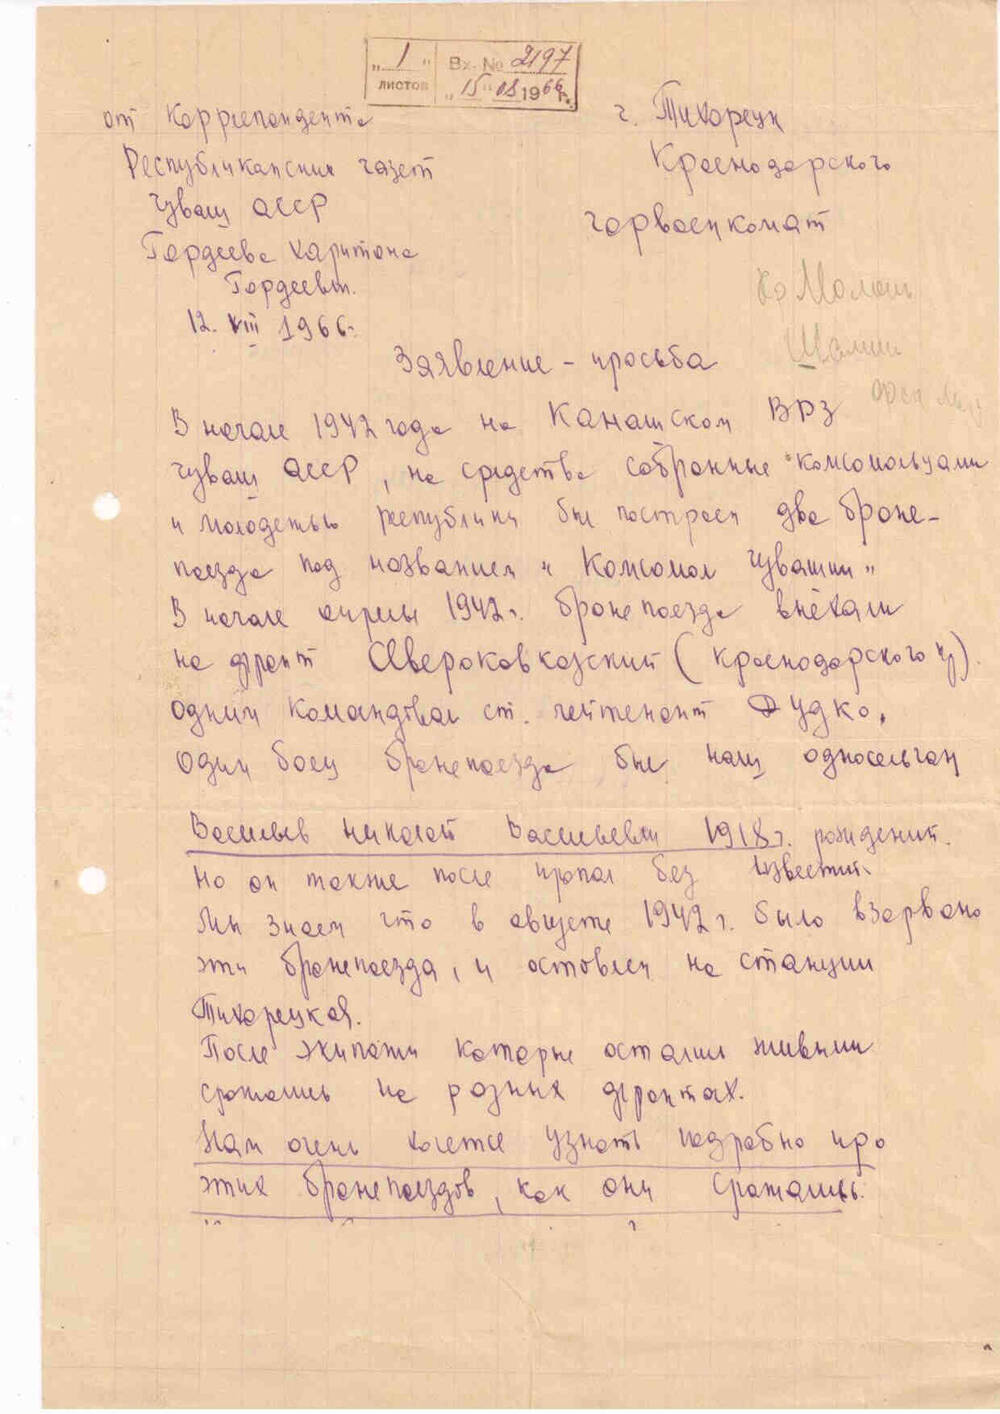 „ 1 “ листов
Вх. № 2197
„ 15 “ 08 1966 г.
от Корреспондента
Республиканских газет
Чуваш АССР
Гордеева Харитона
Гордеевич.
12. VIII 1966г.
г. Тихорецк
Краснодарского
Горвоенкомат
Заявление – просьба
В начале 1942 года на Канашском ВРЗ
Чуваш АССР, на средства собранные комсомольцами
и молодежью республики был построен два броне-
поезда под названием „Комсомол Чувашии"
В начале апреля 1942г. бронепоезда выехали
на фронт Северокавказский (Краснодарского кр).
одним командовал ст. лейтенант Дудко,
один боец бронепоезда был наш односельчан
Васильев Николай Васильевич 1918г. рождения.
но он также после пропал без известия.
Мы знаем что в августе 1942г. было взорвано
эти бронепоезда, и оставлен на станции
Тихорецкая.
После экипажи которые остались живыми
сражались на разных фронтах.
Нам очень хочется узнать подробно про
этих бронепоездов, как они сражались.